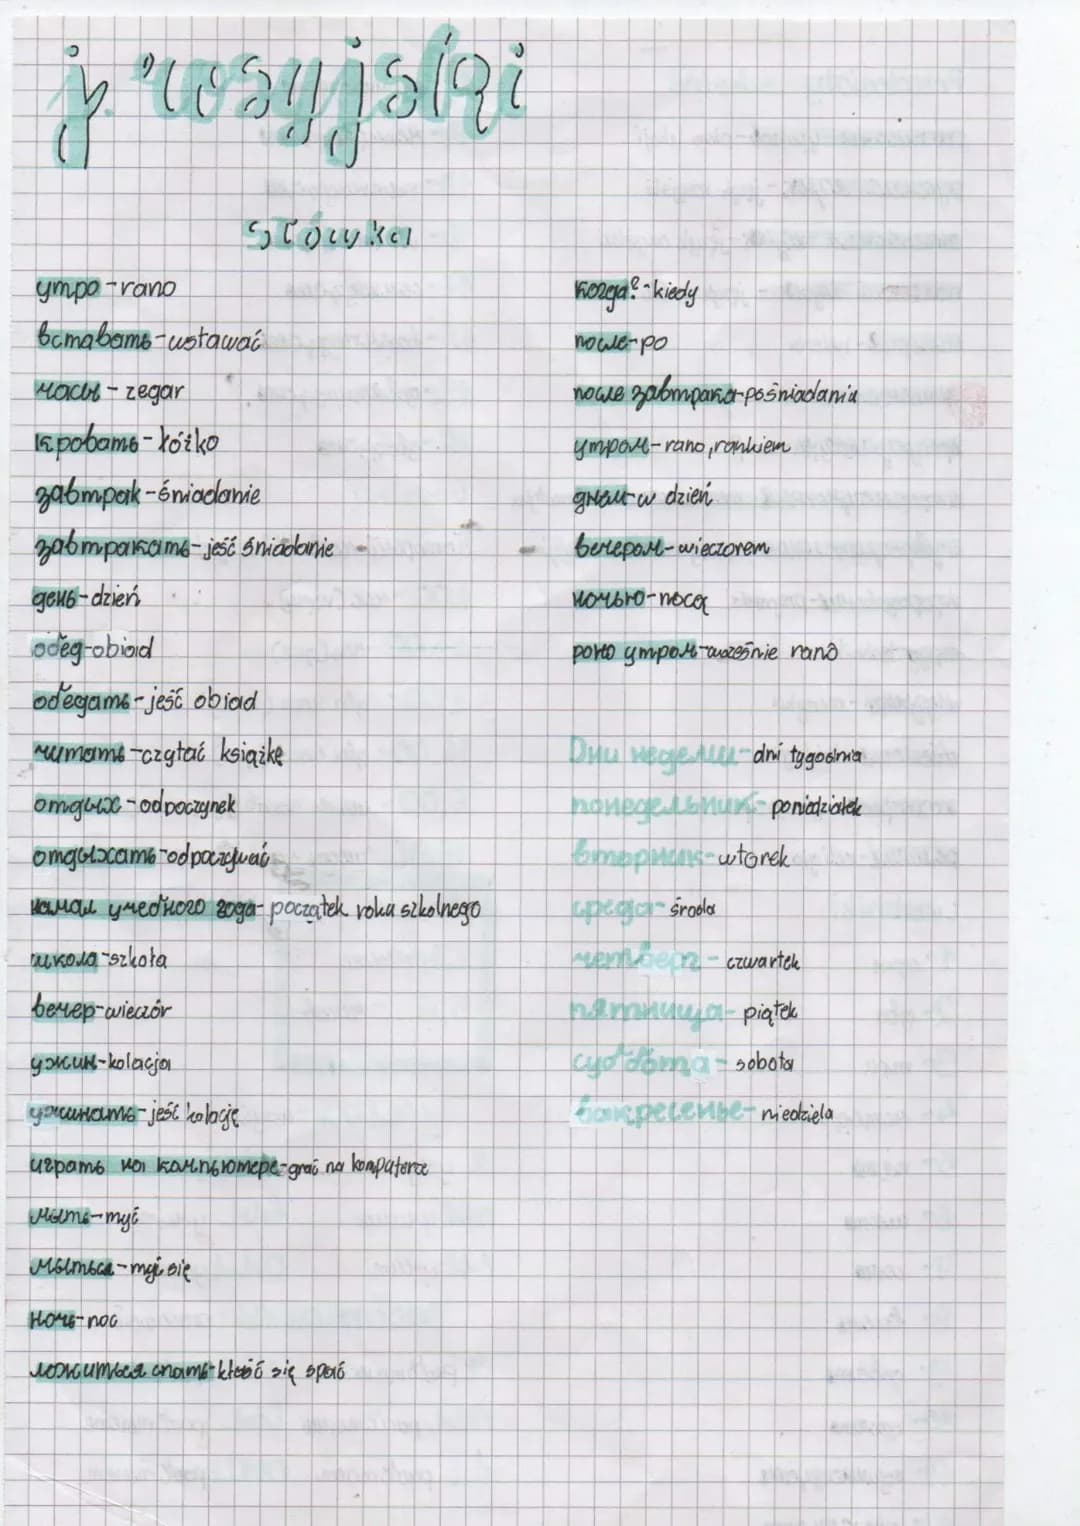 j. rosyjski
słówka
утро - rano
вставать - wstawać
часы - zegar
кровать - łóżko
завтрак - śniadanie
завтракать - jeść śniadanie
день - dzień
обед - obiad
обедать - jeść obiad
читать - czytać książkę
отдых - odpoczynek
отдыхать - odpoczywać
учебного года - początek roku szkolnego
школа - szkoła
вечер - wieczór
ужин - kolacja
ужинать - jeść kolację
играть на компьютере - grać na komputerze
мыть - myć
мыться - myć się
ночь - noc
ложиться спать - kłaść się spać
когда? - kiedy
после - po
после завтрака - po śniadaniu
утром - rano, rankiem
днем - w dzień
вечером - wieczorem
ночью - nocą
рано утром - wcześnie rano
Дни недели - dni tygodnia
понедельник - poniedziałek
вторник - wtorek
среда - środa
четверг - czwartek
пятница - piątek
суббота - sobota
- niedziela